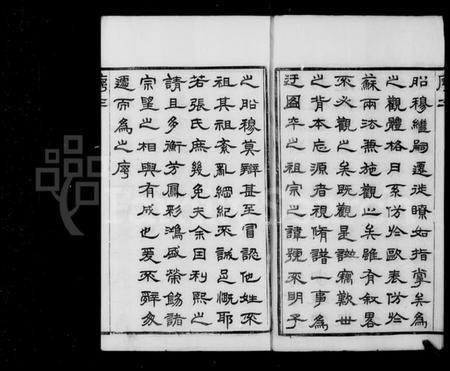 序二
昭穆繼嗣遷徙瞭如指掌矣為
之觀體格日系仿於歐表仿於
蘇兩法兼施觀之矣雖有敘畧
來必觀之矣既觀是譜竊歎世
之背本忘源者視脩譜一事為
迂圖卒之祖宗之諱號來明子
之昭穆莫辯甚至冒認他姓來
祖其祖紊亂綱紀來誠足慨耶
若張氏庶幾免夫余因利熙之
請且多衡芳鳳彩鴻盛榮錫諸
宗望之相與有成也爰來辭為
遷而為之序
序三